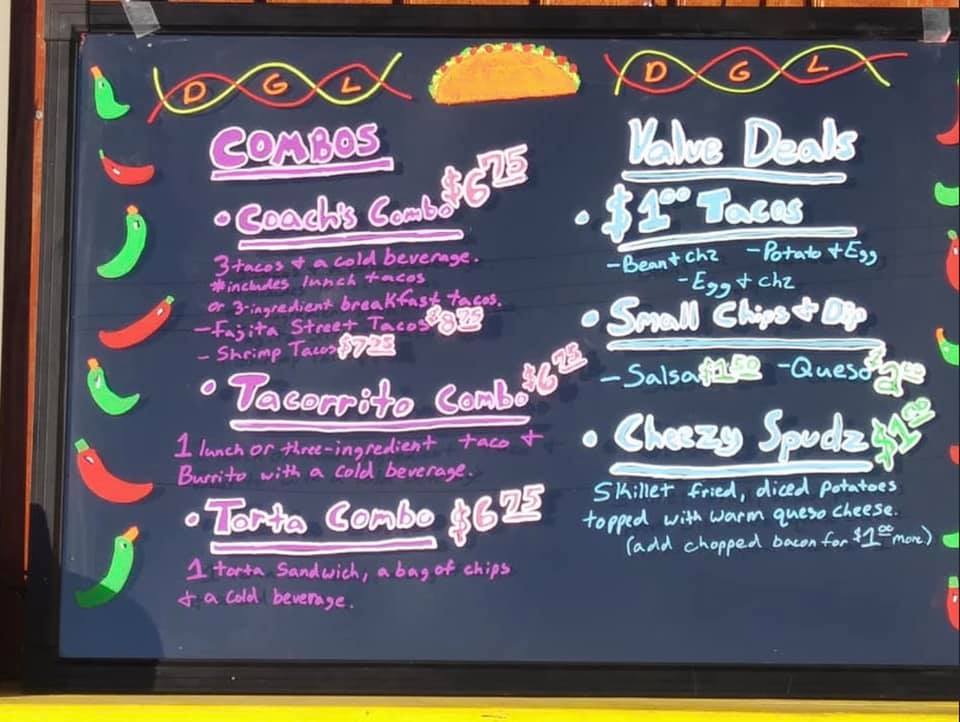 D G L
COMBOS
• Coach's Combo $6 75
3 tacos & a cold beverage.
*includes lunch tacos
or 3-ingredient breakfast tacos.
- Fajita Street Tacos $8 75
- Shrimp Tacos $7 25
• Tacorrito Combo $6 75
1 lunch or three-ingredient taco &
Burrito with a cold beverage.
• Torta Combo $6 75
1 torta sandwich, a bag of chips
& a cold beverage.
D G L
Value Deals
• $1 00 Tacos
- Bean & chz - Potato & Egg
- Egg & chz
• Small Chips & Dip
- Salsa $1.50 - Queso $2 00
• Cheezy Spudz $1 00
Skillet fried, diced potatoes
topped with warm queso cheese.
(add chopped bacon for $1 00 more)